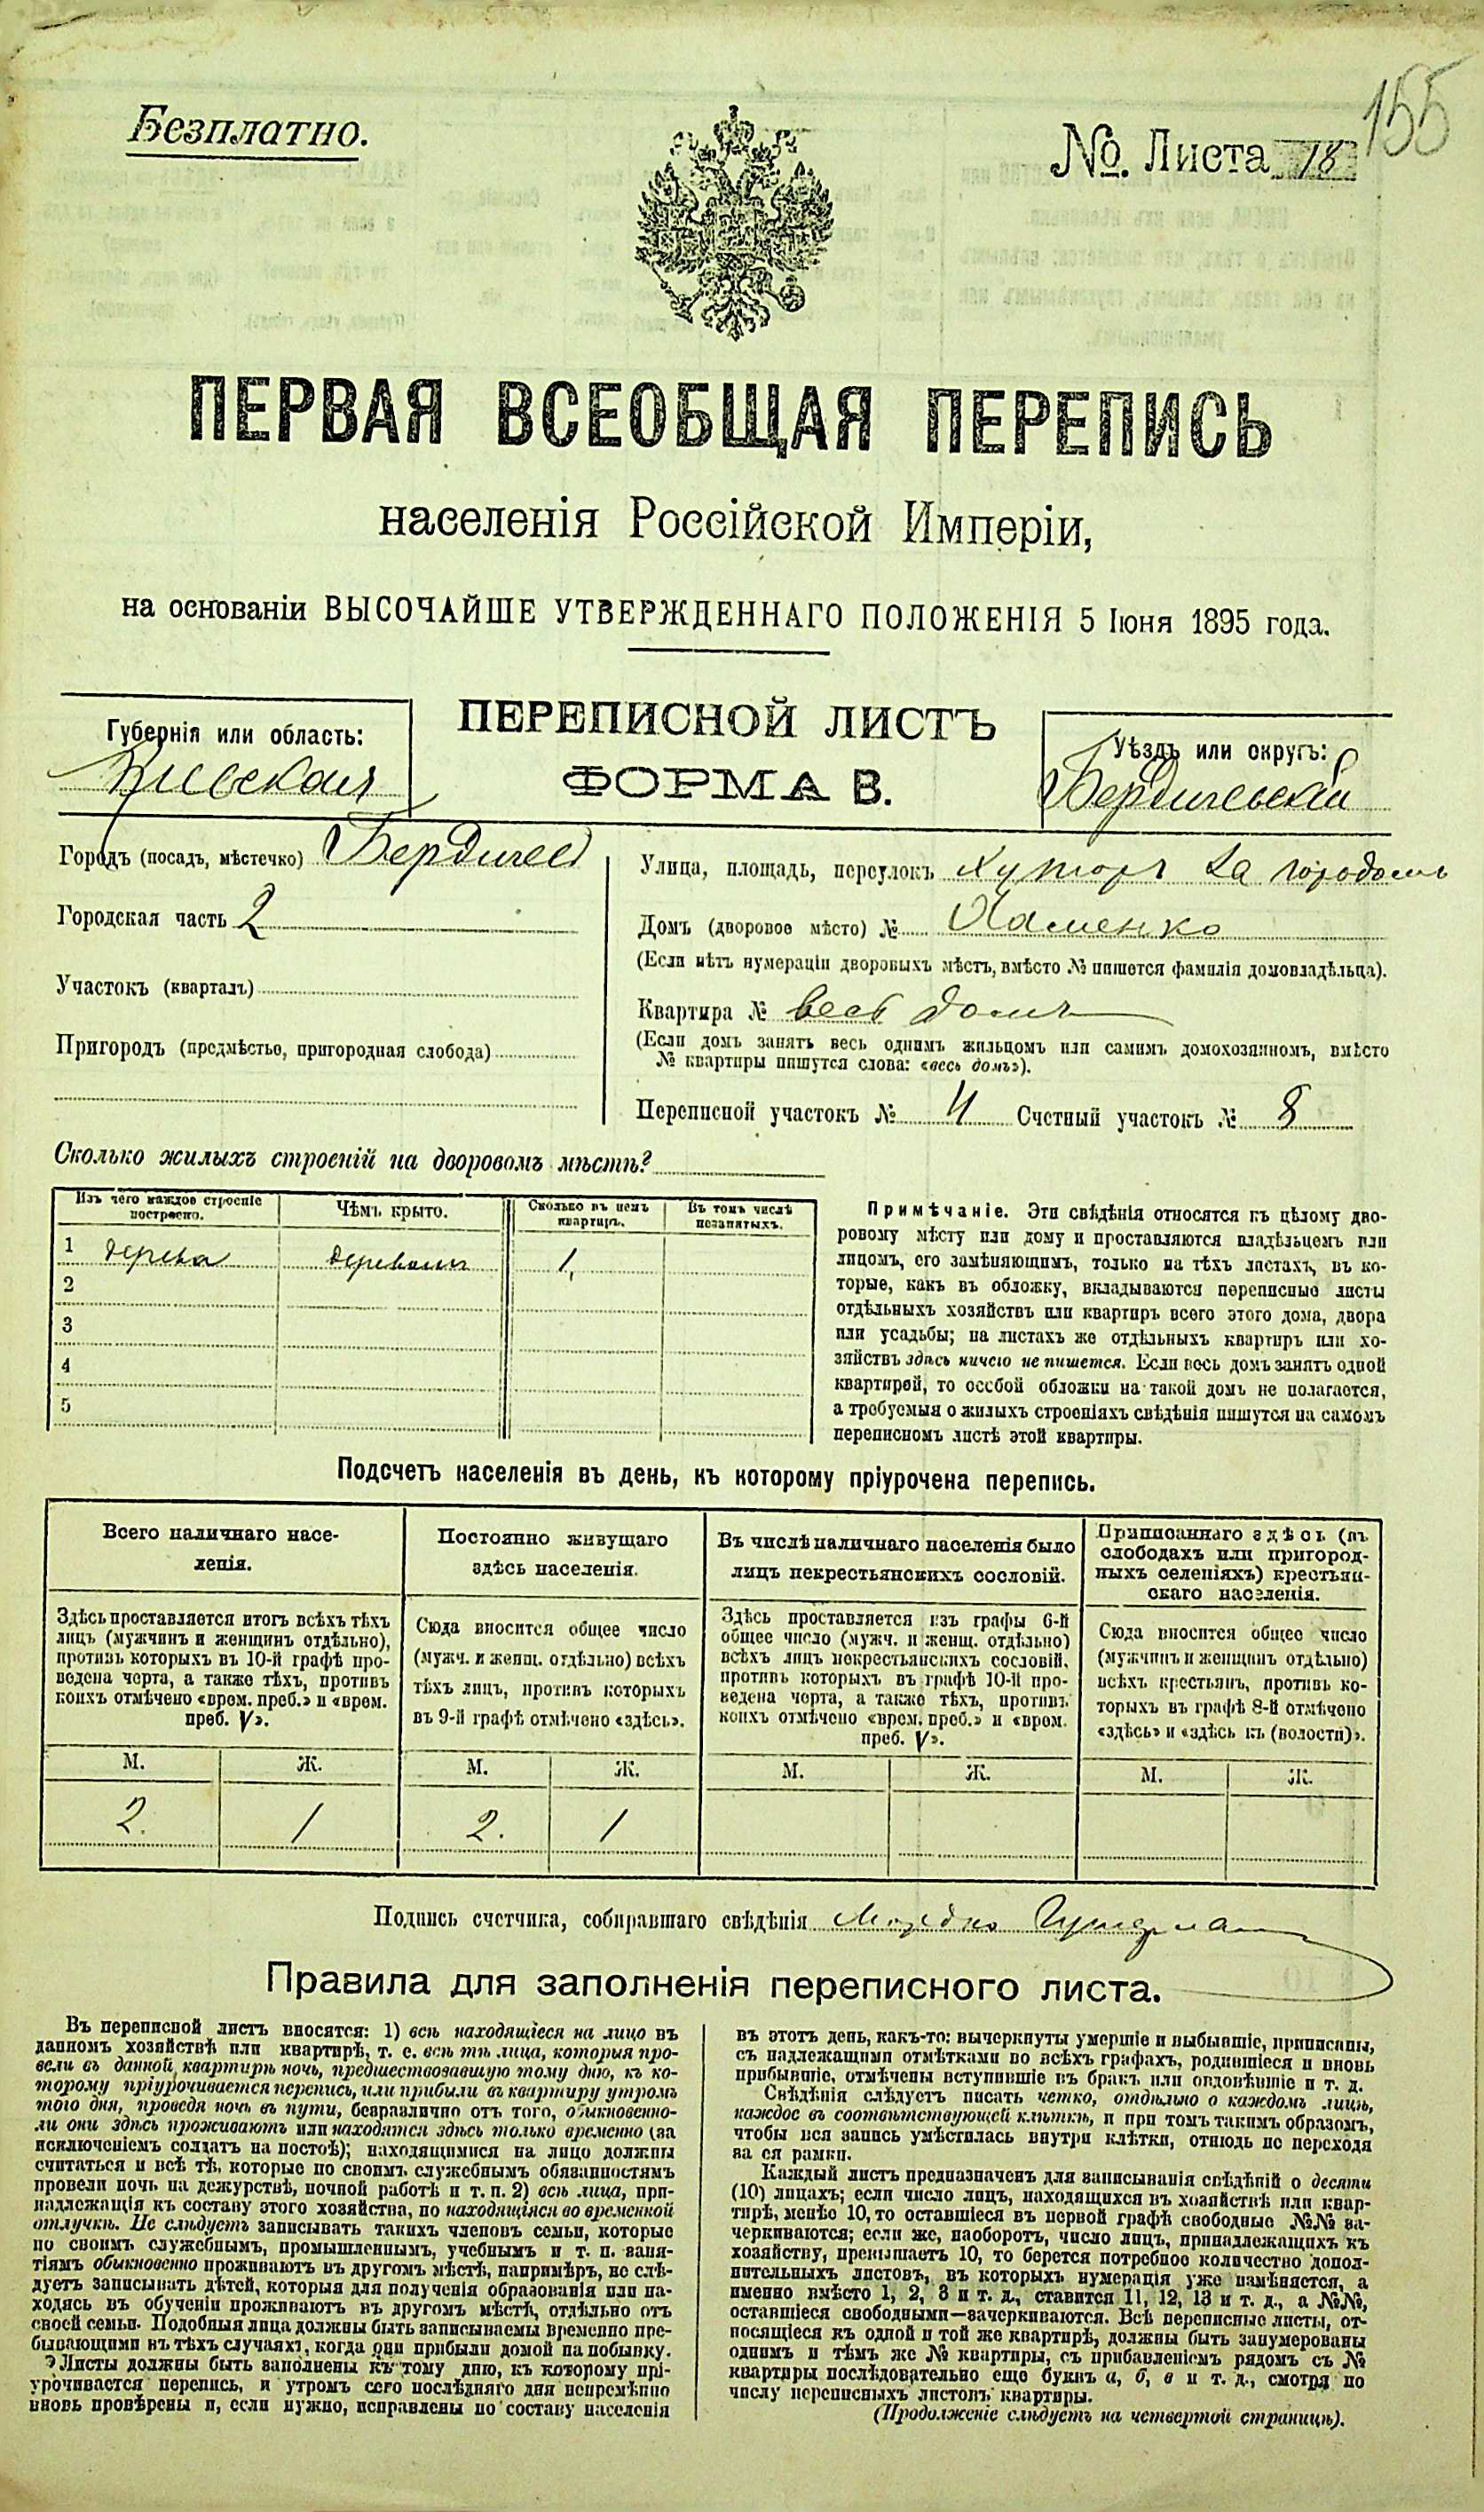 155
Безплатно.
№. Листа 18
ПЕРВАЯ ВСЕОБЩАЯ ПЕРЕПИСЬ
населенія Россійской Имперіи,
на основаніи ВЫСОЧАЙШЕ УТВЕРЖДЕННАГО ПОЛОЖЕНІЯ 5 Іюня 1895 года.
ПЕРЕПИСНОЙ ЛИСТЪ
ФОРМА В.
Губернія или область:
Кіевская
Уѣздъ или округъ:
Бердичевскій
Городъ (посадъ, мѣстечко) Бердичев
Городская часть 2
Участокъ (кварталъ)
Пригородъ (предмѣстье, пригородная слобода)
Улица, площадь, переулокъ Хуторъ за городомъ
Домъ (дворовое мѣсто) №
(Если нѣтъ нумераціи дворовыхъ мѣстъ, вмѣсто № пишется фамилія домовладѣльца).
Квартира № весь домъ
(Если домъ занятъ весь однимъ жильцомъ или самимъ домохозяиномъ, вмѣсто
№ квартиры пишутся слова: «весь домъ»).
Переписной участокъ № 4 Счетный участокъ № 8
Сколько жилыхъ строеній на дворовомъ мѣстѣ?
Изъ чего каждое строеніе
построено.
Чѣмъ крыто.
Сколько въ немъ
квартиръ.
Въ томъ числѣ
незанятыхъ.
1 дерева деревомъ 1
2
3
4
5
Примѣчаніе. Эти свѣдѣнія относятся къ цѣлому дво-
ровому мѣсту или дому и проставляются владѣльцемъ или
лицомъ, его замѣняющимъ, только на тѣхъ листахъ, въ ко-
торые, какъ въ обложку, вкладываются переписные листы
отдѣльныхъ хозяйствъ или квартиръ всего этого дома, двора
или усадьбы; на листахъ же отдѣльныхъ квартиръ или хо-
зяйствъ здѣсь ничего не пишется. Если весь домъ занятъ одной
квартирой, то особой обложки на такой домъ не полагается,
а требуемыя о жилыхъ строеніяхъ свѣдѣнія пишутся на самомъ
переписномъ листѣ этой квартиры.
Подсчетъ населенія въ день, къ которому пріурочена перепись.
Всего наличнаго насе-
ленія.
Здѣсь проставляется итогъ всѣхъ тѣхъ
лицъ (мужчинъ и женщинъ отдѣльно),
противъ которыхъ въ 10-й графѣ про-
ведена черта, а также тѣхъ, противъ
коихъ отмѣчено «врем. преб.» и «врем.
преб. V».
М. Ж.
2. 1
Постоянно живущаго
здѣсь населенія.
Сюда вносится общее число
(мужч. и женщ. отдѣльно) всѣхъ
тѣхъ лицъ, противъ которыхъ
въ 9-й графѣ отмѣчено «здѣсь».
М. Ж.
2. 1
Въ числѣ наличнаго населенія было
лицъ некрестьянскихъ сословій.
Здѣсь проставляется изъ графы 6-й
общее число (мужч. и женщ. отдѣльно)
всѣхъ лицъ некрестьянскихъ сословій,
противъ которыхъ въ графѣ 10-й про-
ведена черта, а также тѣхъ, противъ
коихъ отмѣчено «врем. преб.» и «врем.
преб. V».
М. Ж.
Приписаннаго здѣсь (въ
слободахъ или пригород-
ныхъ селеніяхъ) крестьян-
скаго населенія.
Сюда вносится общее число
(мужчинъ и женщинъ отдѣльно)
всѣхъ крестьянъ, противъ ко-
торыхъ въ графѣ 8-й отмѣчено
«здѣсь» и «здѣсь къ (волости)».
М. Ж.
Подпись счетчика, собиравшаго свѣдѣнія
Правила для заполненія переписного листа.
Въ переписной листъ вносятся: 1) всѣ находящіеся на лицо въ
данномъ хозяйствѣ или квартирѣ, т. е. всѣ тѣ лица, которыя про-
вели въ данной квартирѣ ночь, предшествовавшую тому дню, къ ко-
торому пріурочивается перепись, или прибыли въ квартиру утромъ
того дня, проведя ночь въ пути, безразлично отъ того, обыкновенно-
ли они здѣсь проживаютъ или находятся здѣсь только временно (за
исключеніемъ солдатъ на постоѣ); находящимися на лицо должны
считаться и всѣ тѣ, которые по своимъ служебнымъ обязанностямъ
провели ночь на дежурствѣ, ночной работѣ и т. п. 2) всѣ лица, при-
надлежащія къ составу этого хозяйства, но находящіяся во временной
отлучкѣ. Не слѣдуетъ записывать такихъ членовъ семьи, которые
по своимъ служебнымъ, промышленнымъ, учебнымъ и т. п. заня-
тіямъ обыкновенно проживаютъ въ другомъ мѣстѣ, напримѣръ, не слѣ-
дуетъ записывать дѣтей, которыя для полученія образованія или на-
ходясь въ обученіи проживаютъ въ другомъ мѣстѣ, отдѣльно отъ
своей семьи. Подобныя лица должны быть записываемы временно пре-
бывающими въ тѣхъ случаяхъ, когда они прибыли домой на побывку.
Листы должны быть заполнены къ тому дню, къ которому прі-
урочивается перепись, и утромъ сего послѣдняго дня непремѣнно
вновь провѣрены и, если нужно, исправлены по составу населенія
въ этотъ день, какъ-то: вычеркнуты умершіе и выбывшіе, приписаны,
съ надлежащими отмѣтками во всѣхъ графахъ, родившіеся и вновь
прибывшіе, отмѣчены вступившіе въ бракъ или овдовѣвшіе и т. д.
Свѣдѣнія слѣдуетъ писать четко, отдѣльно о каждомъ лицѣ,
каждое въ соотвѣтствующей клѣткѣ, и при томъ такимъ образомъ,
чтобы вся запись умѣстилась внутри клѣтки, отнюдь не переходя
за ея рамки.
Каждый листъ предназначенъ для записыванія свѣдѣній о десяти
(10) лицахъ; если число лицъ, находящихся въ хозяйствѣ или квар-
тирѣ, менѣе 10, то оставшіеся въ первой графѣ свободные №№ за-
черкиваются; если же, наоборотъ, число лицъ, принадлежащихъ къ
хозяйству, превышаетъ 10, то берется потребное количество допол-
нительныхъ листовъ, въ которыхъ нумерація уже измѣняется, а
именно вмѣсто 1, 2, 3 и т. д., ставится 11, 12, 13 и т. д., а №№,
оставшіеся свободными—зачеркиваются. Всѣ переписные листы, от-
носящіеся къ одной и той же квартирѣ, должны быть занумерованы
однимъ и тѣмъ же № квартиры, съ прибавленіемъ рядомъ съ №
квартиры послѣдовательно еще буквъ а, б, в и т. д., смотря по
числу переписныхъ листовъ квартиры.
(Продолженіе слѣдуетъ на четвертой страницѣ).